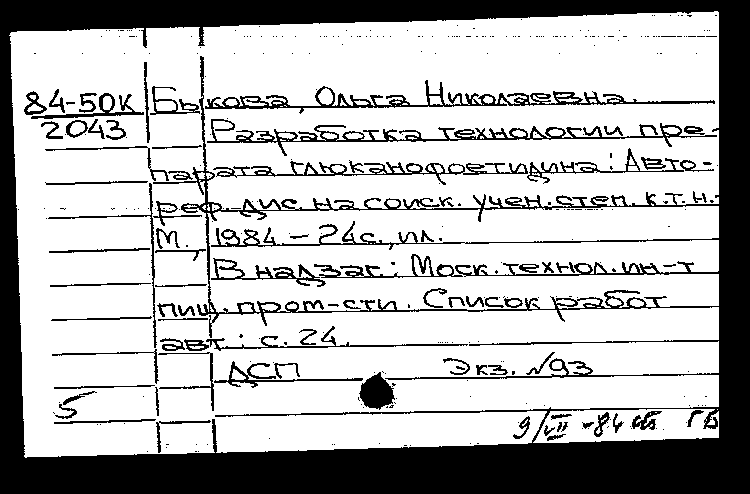 84-50К Быкова, Ольга Николаевна.
2043 Разработка технологии пре-
парата глюканофоетидина: Авто-
реф. дис. на соиск. учен. степ. к.т.н.-
М., 1984. - 24с., ил.
В надзаг.: Моск. технол. ин-т
пищ. пром-сти. Список работ
авт.: с. 24.
ДСП Экз. №93
5
9/VII -84 ГБ